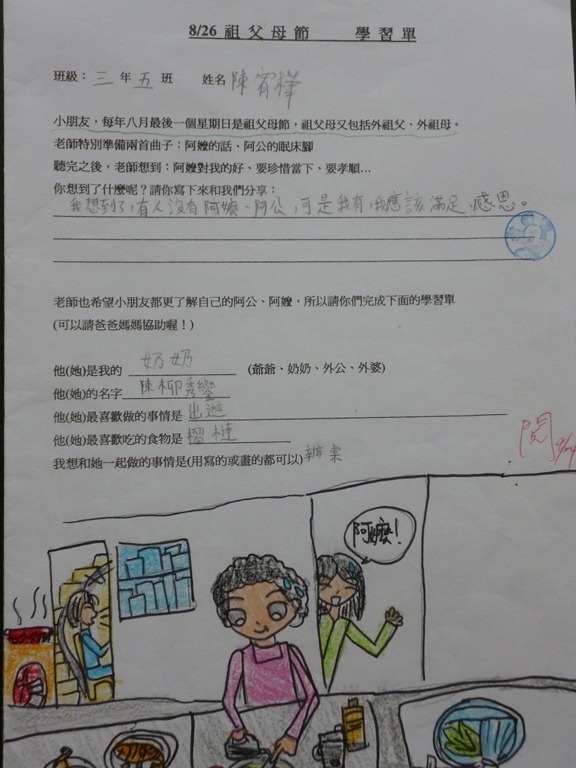 8/26 祖父母節 學習單
班級：三年五班 姓名 陳宥樺
小朋友，每年八月最後一個星期日是祖父母節，祖父母又包括外祖父、外祖母。
老師特別準備兩首曲子：阿嬤的話、阿公的眠床腳
聽完之後，老師想到：阿嬤對我的好、要珍惜當下、要孝順…
你想到了什麼呢？請你寫下來和我們分享：
我想到了，有人沒有阿嬤、阿公，可是我有，我應該滿足、感恩。
老師也希望小朋友都更了解自己的阿公、阿嬤，所以請你們完成下面的學習單
(可以請爸爸媽媽協助喔！)
他(她)是我的 奶奶 (爺爺、奶奶、外公、外婆)
他(她)的名字 陳柳秀鑾
他(她)最喜歡做的事情是 出遊
他(她)最喜歡吃的食物是 榴槤
我想和她一起做的事情是(用寫的或畫的都可以)
閱
阿嬤！